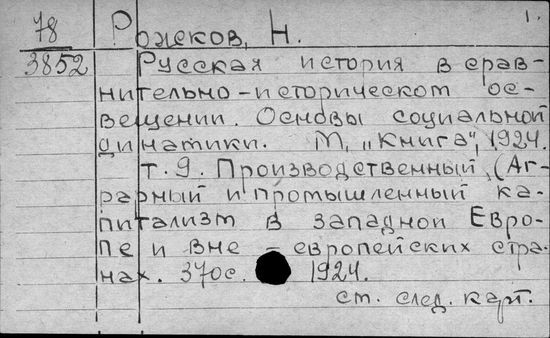 1.
78 Рожков, Н.
3852 Русская история в срав-
нительно-историческом ос-
вещении. Основы социальной
динамики. М, „Книга", 1924.
т. 9. Производственный (Аг-
рарный и промышленный ка-
питализм в западной Евро-
пе и вне - европейских стра-
нах. 370с. 1924.
см. след. карт.